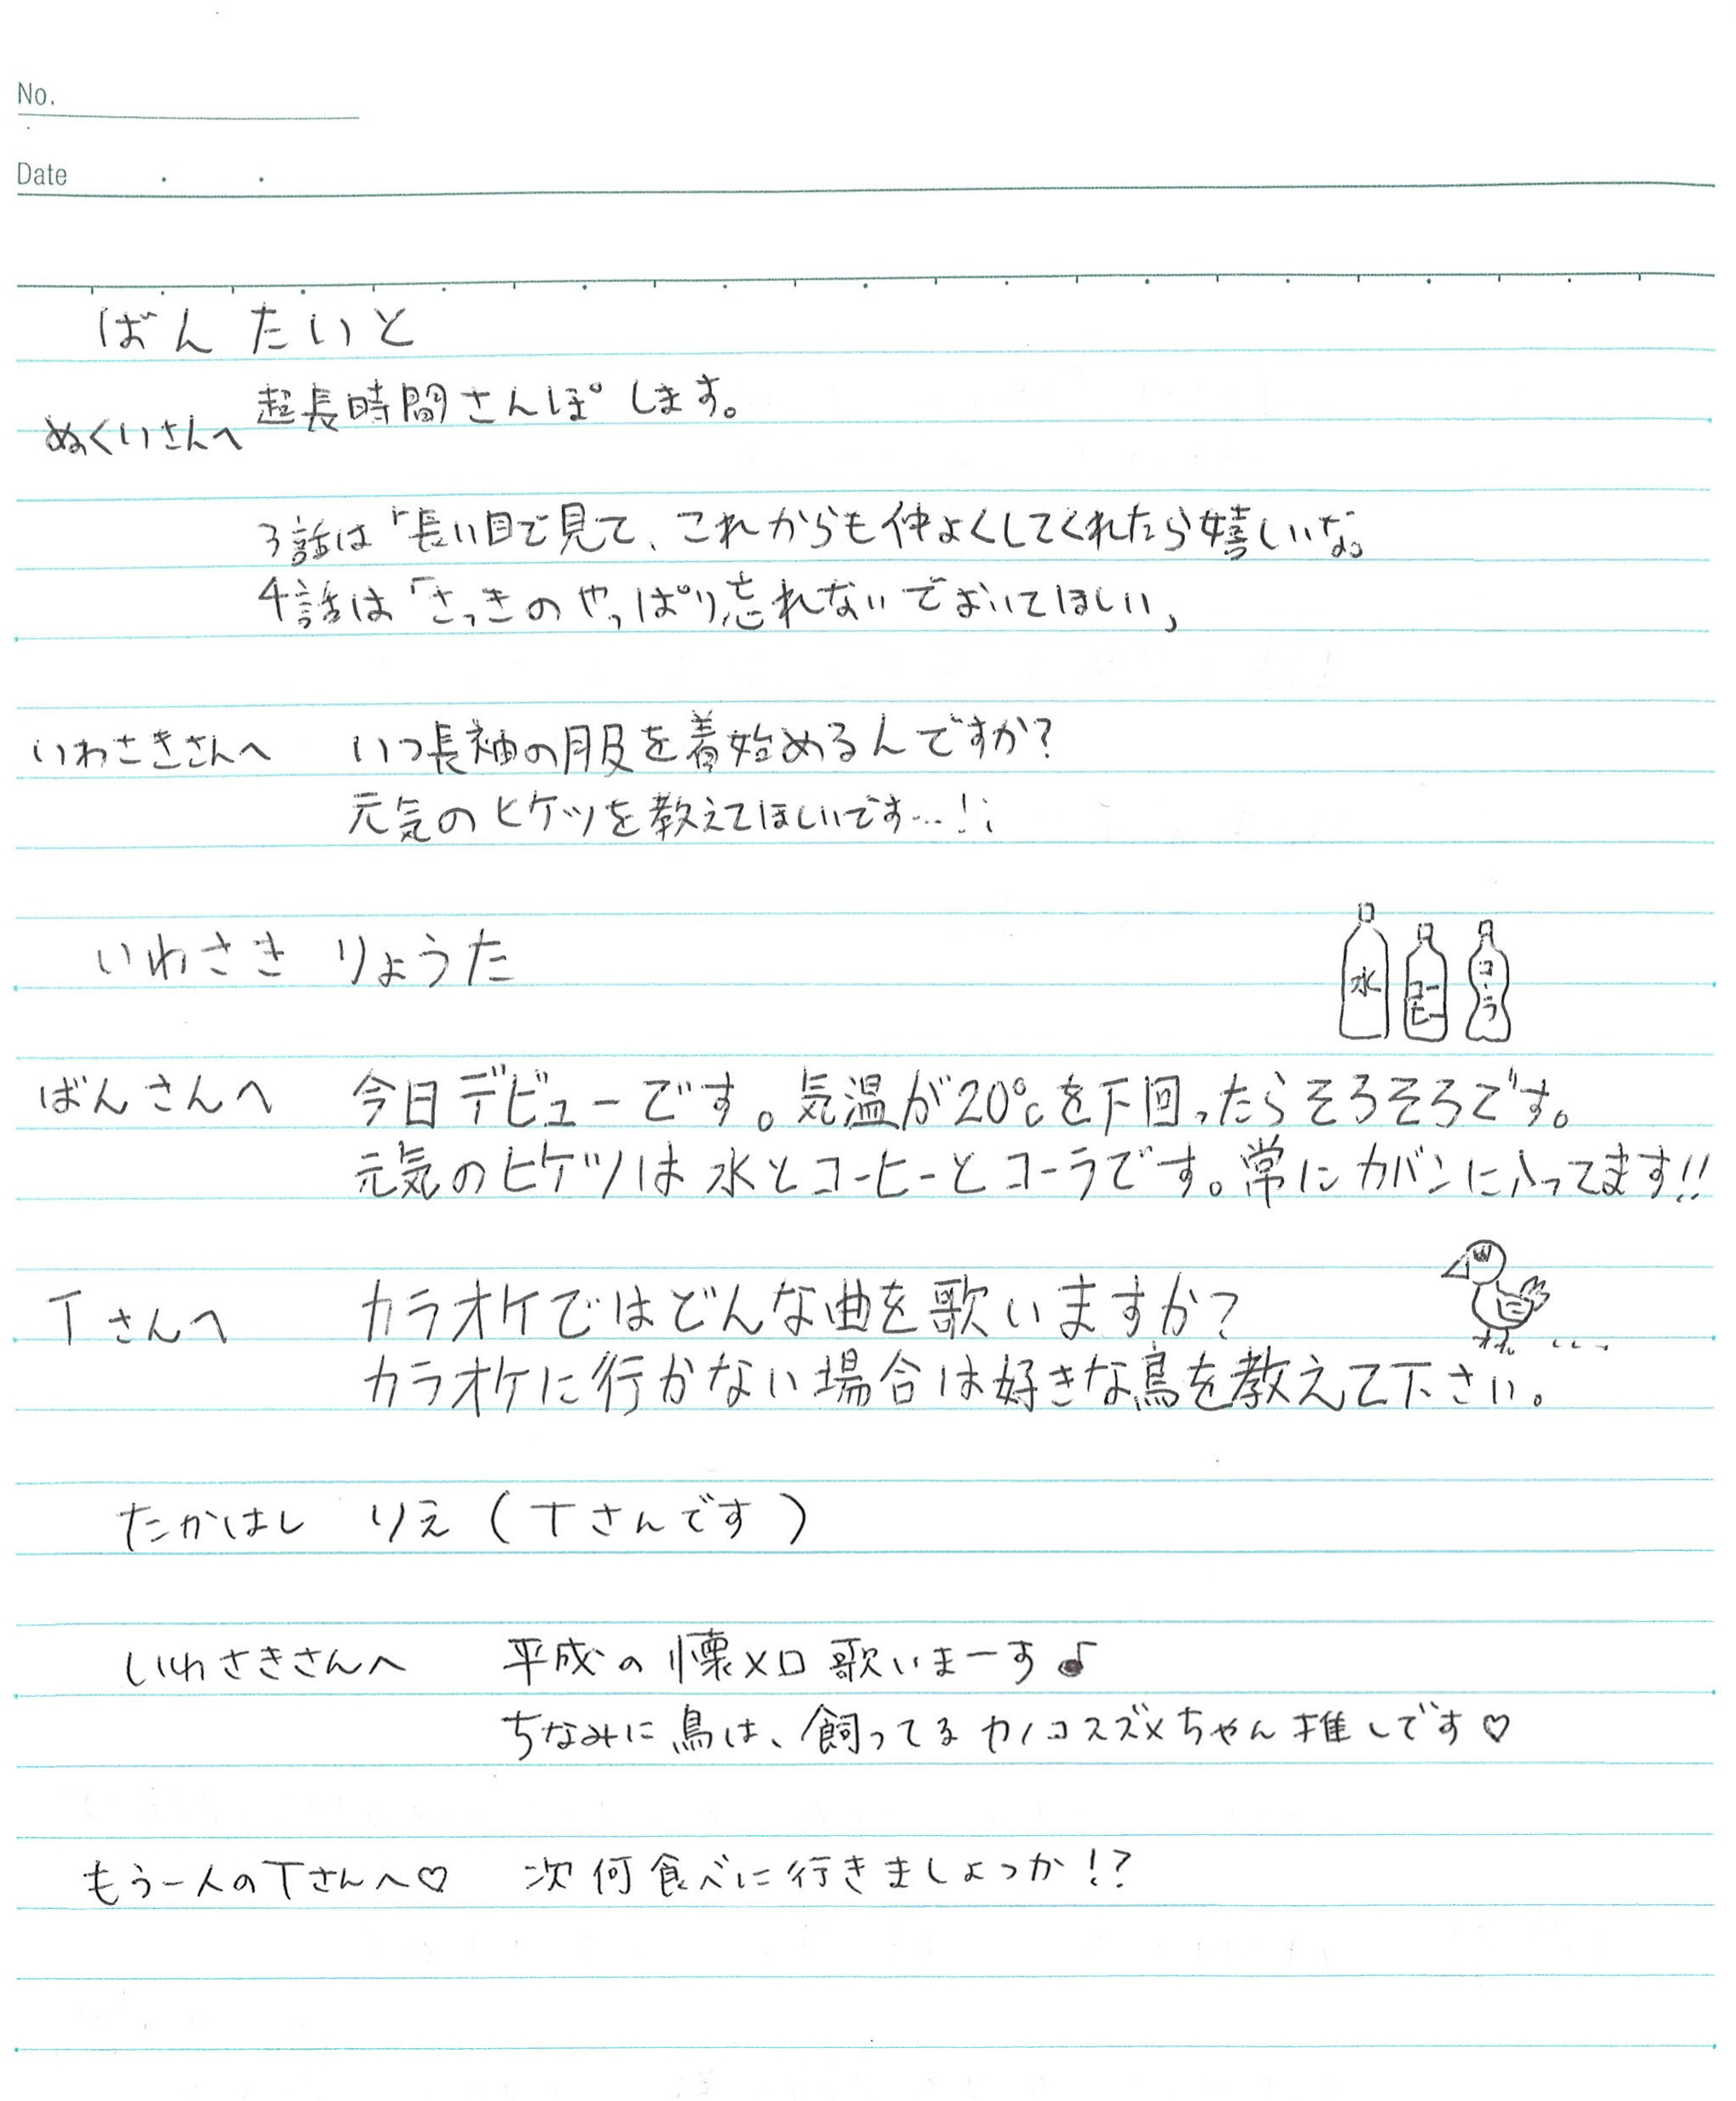 No.
Date
ばん たいと
超長時間さんぽします。
ぬくいさんへ
3話は「長い目で見て、これからも仲よくしてくれたら嬉しいな。
4話は「さっきのやっぱり忘れないでおいてほしい」
いわさきさんへ いつ長袖の服を着始めるんですか?
元気のヒケツを教えてほしいです…!;
いわさき りょうた
水 コーヒー コーラ
ばんさんへ 今日デビューです。気温が20℃を下回ったらそろそろです。
元気のヒケツは水とコーヒーとコーラです。常にカバンに入ってます!!
Tさんへ カラオケではどんな曲を歌いますか?
カラオケに行かない場合は好きな鳥を教えて下さい。
たかはし りえ (Tさんです)
いわさきさんへ 平成の懐メロ歌いまーす♪
ちなみに鳥は、飼ってるカノコスズメちゃん推しです♡
もう一人のTさんへ♡ 次何食べに行きましょっか!?